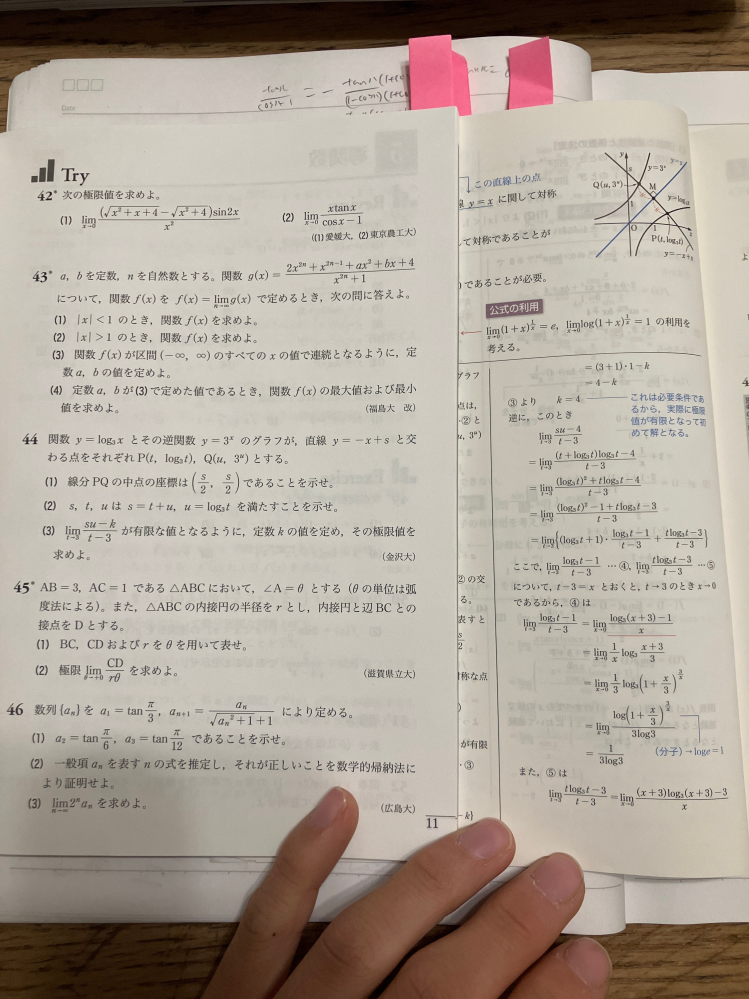 Date
tanx/(cosx-1) = - tanx(1+cos / (1-cosx)(1+co
Try
42* 次の極限値を求めよ。
(1) lim_{x→0} (√(x²+x+4)-√(x³+4))sin2x / x² (2) lim_{x→0} xtanx/(cosx-1)
((1)愛媛大, (2)東京農工大)
43* a, b を定数, n を自然数とする。関数 g(x)=(2x^{2n}+x^{2n-1}+ax²+bx+4)/(x^{2n}+1)
について, 関数 f(x) を f(x)=lim_{n→∞} g(x) で定めるとき, 次の問に答えよ。
(1) |x|<1 のとき, 関数 f(x) を求めよ。
(2) |x|>1 のとき, 関数 f(x) を求めよ。
(3) 関数 f(x) が区間 (-∞, ∞) のすべての x の値で連続となるように, 定
数 a, b の値を定めよ。
(4) 定数 a, b が(3)で定めた値であるとき, 関数 f(x) の最大値および最小
値を求めよ。 (福島大 改)
44 関数 y=log₃x とその逆関数 y=3ˣ のグラフが, 直線 y=-x+s と交
わる点をそれぞれ P(t, log₃t), Q(u, 3ᵘ) とする。
(1) 線分 PQ の中点の座標は (s/2, s/2) であることを示せ。
(2) s, t, u は s=t+u, u=log₃t を満たすことを示せ。
(3) lim_{t→3} (su-k)/(t-3) が有限な値となるように, 定数 k の値を定め, その極限値を
求めよ。 (金沢大)
45* AB=3, AC=1 である △ABC において, ∠A=θ とする (θ の単位は弧
度法による)。また, △ABC の内接円の半径を r とし, 内接円と辺 BC との
接点を D とする。
(1) BC, CD および r を θ を用いて表せ。
(2) 極限 lim_{θ→+0} CD/rθ を求めよ。 (滋賀県立大)
46 数列 {aₙ} を a₁=tan π/3, aₙ₊₁=aₙ/(√(aₙ²+1)+1) により定める。
(1) a₂=tan π/6, a₃=tan π/12 であることを示せ。
(2) 一般項 aₙ を表す n の式を推定し, それが正しいことを数学的帰納法に
より証明せよ。
(3) lim_{n→∞} 2ⁿaₙ を求めよ。 (広島大)
11
この直線上の点
線 y=x に関して対称
して対称であることが
であることが必要。
y
y=3ˣ
y=x
Q(u, 3ᵘ)
M
y=log₃x
1
O
1
x
P(t, log₃t)
y=-x+s
公式の利用
lim_{x→0} (1+x)^{1/x}=e, lim_{x→0} log(1+x)^{1/x}=1 の利用を
考える。
グラフ
点は,
②と
u, 3ᵘ)
②の交
る。
表すと
s/2
対称な点
が有限
③
-k}
=(3+1)·1-k
=4-k
③より k=4
これは必要条件であ
るから, 実際に極限
値が有限となって初
めて解となる。
逆に, このとき
lim_{t→3} (su-4)/(t-3)
=lim_{t→3} ((t+log₃t)log₃t-4)/(t-3)
=lim_{t→3} ((log₃t)²+tlog₃t-4)/(t-3)
=lim_{t→3} ((log₃t)²-1+tlog₃t-3)/(t-3)
=lim_{t→3} {(log₃t+1)·(log₃t-1)/(t-3)+(tlog₃t-3)/(t-3)}
ここで, lim_{t→3} (log₃t-1)/(t-3) …④, lim_{t→3} (tlog₃t-3)/(t-3) …⑤
について, t-3=x とおくと, t→3 のとき x→0
であるから, ④は
lim_{t→3} (log₃t-1)/(t-3) =lim_{x→0} (log₃(x+3)-1)/x
=lim_{x→0} 1/x log₃ (x+3)/3
=lim_{x→0} 1/3 log₃(1+x/3)^{3/x}
=lim_{x→0} log(1+x/3)^{3/x}/3log3
=1/3log3
(分子)→loge=1
また, ⑤は
lim_{t→3} (tlog₃t-3)/(t-3) =lim_{x→0} ((x+3)log₃(x+3)-3)/x